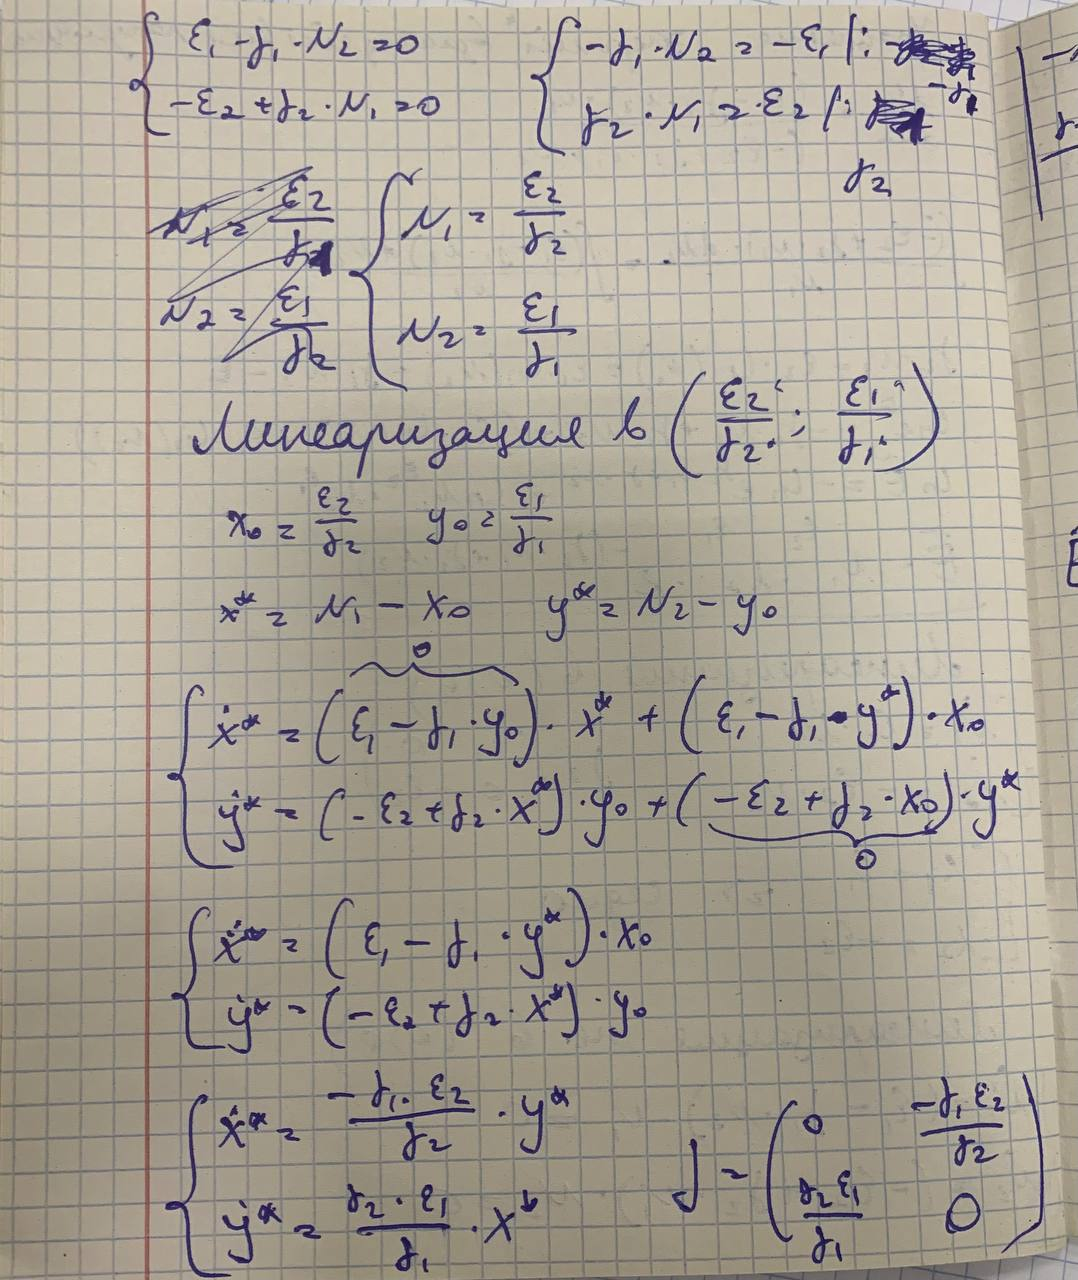 { ε₁ - γ₁ · N₂ = 0
{ -ε₂ + γ₂ · N₁ = 0
{ -γ₁ · N₂ = -ε₁ |: -γ₁
{ γ₂ · N₁ = ε₂ |: γ₂
N₁ = ε₂/γ₂
N₂ = ε₁/γ₂
{ N₁ = ε₂/γ₂
{ N₂ = ε₁/γ₁
Линеаризация в (ε₂/γ₂ ; ε₁/γ₁)
x₀ = ε₂/γ₂ y₀ = ε₁/γ₁
x* = N₁ - x₀ y* = N₂ - y₀
0
{ ẋ* = (ε₁ - γ₁ · y₀) · x* + (ε₁ - γ₁ · y*) · x₀
{ ẏ* = (-ε₂ + γ₂ · x*) · y₀ + (-ε₂ + γ₂ · x₀) · y*
0
{ ẋ* = (ε₁ - γ₁ · y*) · x₀
{ ẏ* = (-ε₂ + γ₂ · x*) · y₀
{ ẋ* = -γ₁ · ε₂/γ₂ · y*
{ ẏ* = γ₂ · ε₁/γ₁ · x*
J = ( 0 -γ₁ε₂/γ₂
γ₂ε₁/γ₁ 0 )